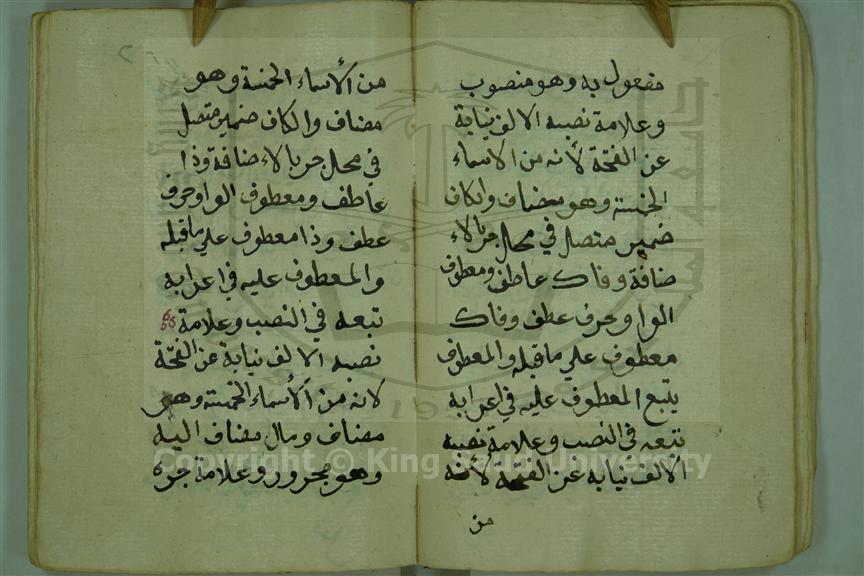 مفعول به وهو منصوب
وعلامة نصبه الالف نيابة
عن الفتحة لأنه من الاسماء
الخمسة وهو مضاف والكاف
ضمير متصل في محل جر بالاء
ضافة وفاك عاطف ومعطوف
الواو حرف عطف وفاك
معطوف علي ماقبله والمعطوف
يتبع المعطوف عليه في اعرابه
تبعه في النصب وعلامة نصبه
الالف نيابة عن الفتحة لأنه
من
من الأسماء الخمسة وهو
مضاف والكاف ضمير متصل
في محل جر بالاء ضافة وذا
عاطف ومعطوف الواو حرف
عطف وذا معطوف علي ماقبله
والمعطوف عليه في اعرابه
تبعه في النصب وعلامة
نصبه الالف نيابة عن الفتحة
لانه من الأسماء الخمسة وهو
مضاف ومال مضاف اليه
وهو مجرور وعلامة جره
Copyright © King Saud University